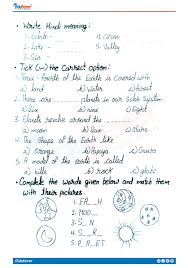 • Write Hindi meaning:
1. Globe - 4. Ocean
2. Lake - 5. Valley
3. Sun -
• Tick (✓) the Correct option:
1. Three-fourth of the Earth is Covered with
a) land b) Water c) forest
2. There are planets in our solar system.
a) Six b) nine c) Eight
3. Planets revolve around the
a) moon b) Sun c) Stars
4. The Shape of the Earth like
a) Orange b) Papaya c) Guava
5. A model of the earth is called
a) hills b) rock c) globe
• Complete the words given below and match them with their pictures.
1. EA__H
2. MOO__
3. S__N
4. S__A R__
5. P__A__ET